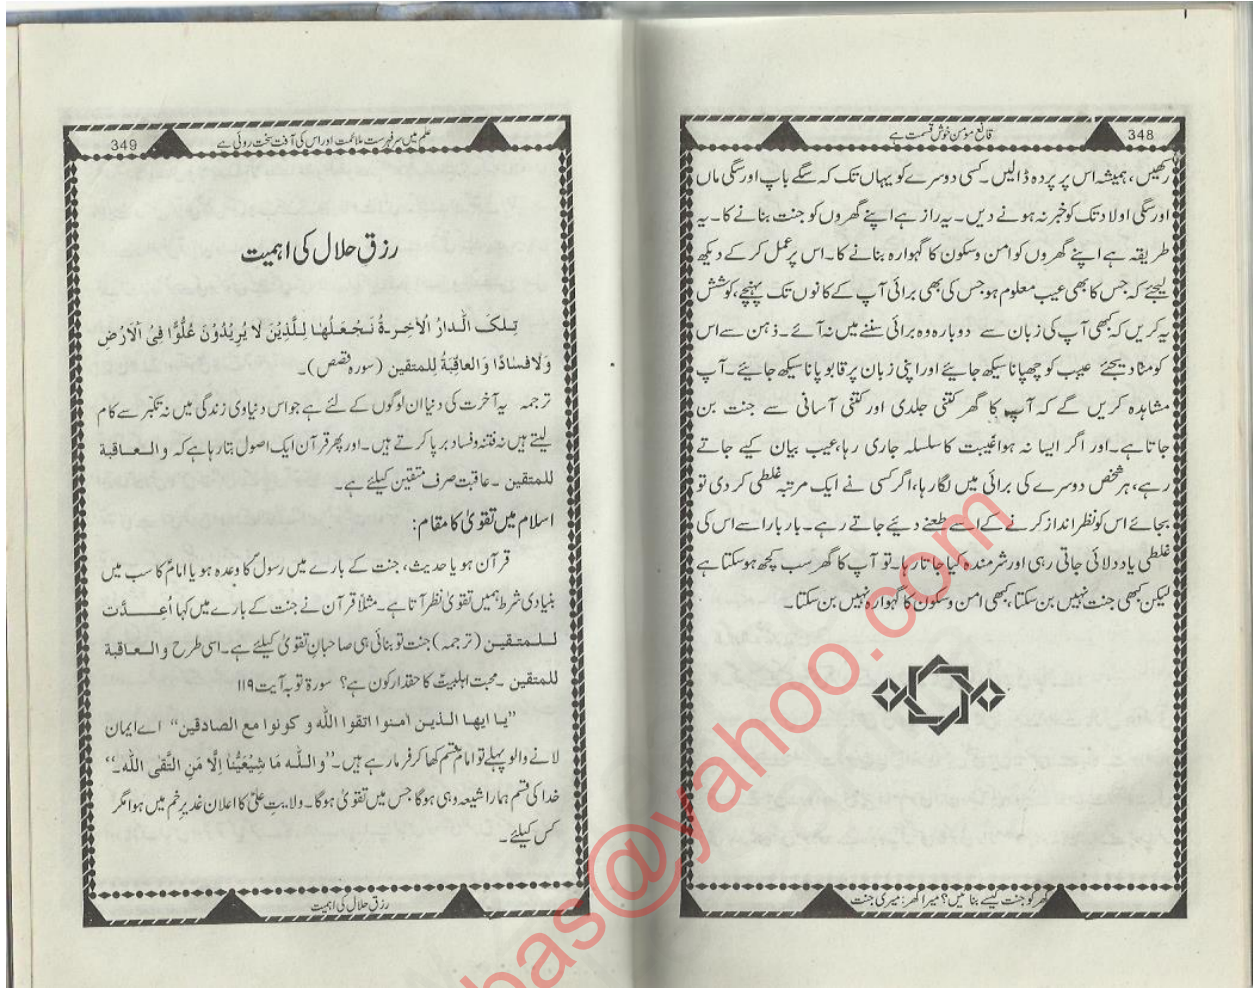 348
قانع مؤمن خوش قسمت ہے
رکھیں، ہمیشہ اس پر پردہ ڈالیں۔ کسی دوسرے کو یہاں تک کہ سگے باپ اور سگی ماں
اور سگی اولاد تک کو خبر نہ ہونے دیں۔ یہ راز ہے اپنے گھروں کو جنت بنانے کا۔ یہ
طریقہ ہے اپنے گھروں کو امن و سکون کا گہوارہ بنانے کا۔ اس پر عمل کر کے دیکھ
لیجئے کہ جس کا بھی عیب معلوم ہو جس کی بھی برائی آپ کے کانوں تک پہنچے، کوشش
یہ کریں کہ کبھی آپ کی زبان سے دوبارہ وہ برائی سننے میں نہ آئے۔ ذہن سے اس
کو مٹا دیجئے عیب کو چھپانا سیکھ جایئے اور اپنی زبان پر قابو پانا سیکھ جایئے۔ آپ
مشاہدہ کریں گے کہ آپ کا گھر کتنی جلدی اور کتنی آسانی سے جنت بن
جاتا ہے۔ اور اگر ایسا نہ ہوا غیبت کا سلسلہ جاری رہا، عیب بیان کیے جاتے
رہے، ہر شخص دوسرے کی برائی میں لگا رہا، اگر کسی نے ایک مرتبہ غلطی کر دی تو
بجائے اس کو نظر انداز کرنے کے اسے طعنے دیئے جاتے رہے۔ بار بار اسے اس کی
غلطی یاد دلائی جاتی رہی اور شرمندہ کیا جاتا رہا۔ تو آپ کا گھر سب کچھ ہو سکتا ہے
لیکن کبھی جنت نہیں بن سکتا، کبھی امن و سکون کا گہوارہ نہیں بن سکتا۔
گھر کو جنت کیسے بنائیں؟ میرا گھر: میری جنت
علم میں سرفہرست ملائمت اور اس کی آفت سخت روئی ہے
349
رزقِ حلال کی اہمیت
تِلکَ الَّدارُ الْاٰخِرۃُ نَجْعَلُھٰا لِلَّذِیْنَ لَا یُرِیْدُوْنَ عُلُوًّا فِیْ الْاَرْضِ
وَلَا فسٰادًا وَالعاقِبَۃُ لِلمتقین (سورہ قصص)۔
ترجمہ یہ آخرت کی دنیا ان لوگوں کے لئے ہے جو اس دنیاوی زندگی میں نہ تکبّر سے کام
لیتے ہیں نہ فتنہ و فساد برپا کرتے ہیں۔ اور پھر قرآن ایک اصول بتا رہا ہے کہ والعاقبۃ
للمتقین ۔ عاقبت صرف متقین کیلئے ہے۔
اسلام میں تقویٰ کا مقام:
قرآن ہو یا حدیث، جنت کے بارے میں رسولؐ کا وعدہ ہو یا امامؑ کا سب میں
بنیادی شرط ہمیں تقویٰ نظر آتا ہے۔ مثلاً قرآن نے جنت کے بارے میں کہا اُعِدَّت
للمتقین (ترجمہ) جنت تو بنائی ہی صاحبانِ تقویٰ کیلئے ہے۔ اسی طرح والعاقبۃ
للمتقین ۔ محبت اہلبیتؑ کا حقدار کون ہے؟ سورۃ توبہ آیت ۱۱۹
”یا ایھا الذین اٰمنوا اتقوا اللّٰہ و کونوا مع الصادقین“ اے ایمان
لانے والو پہلے تو امامؑ قسم کھا کر فرما رہے ہیں۔ ”واللّٰہ مَا شِیْعَتُنٰا اِلَّا مَن التَّقی اللّٰہ۔“
خدا کی قسم ہمارا شیعہ وہی ہوگا جس میں تقویٰ ہوگا۔ ولایتِ علیؑ کا اعلان غدیرِ خم میں ہوا مگر
کس کیلئے۔
رزق حلال کی اہمیت
bas@yahoo.com